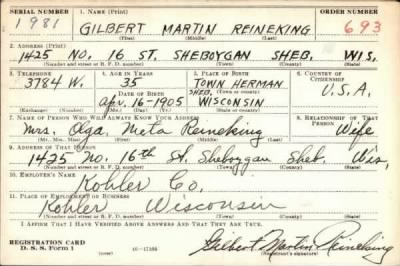 SERIAL NUMBER 1. NAME (Print) ORDER NUMBER
1981 GILBERT MARTIN REINEKING 693
(First) (Middle) (Last)
2. ADDRESS (Print)
1425 NO. 16 ST. SHEBOYGAN SHEB. WIS.
(Number and street or R. F. D. number) (Town) (County) (State)
3. TELEPHONE 4. AGE IN YEARS 5. PLACE OF BIRTH 6. COUNTRY OF CITIZENSHIP
3784 W. 35 TOWN HERMAN
DATE OF BIRTH SHEB. U.S.A.
Apr. 16-1905 WISCONSIN
(Exchange) (Number) (Mo.) (Day) (Yr.) (State or country)
7. NAME OF PERSON WHO WILL ALWAYS KNOW YOUR ADDRESS 8. RELATIONSHIP OF THAT PERSON
Mrs. Olga, Meta Reineking Wife
(Mr., Mrs., Miss) (First) (Middle) (Last)
9. ADDRESS OF THAT PERSON
1425 No. 16th St. Sheboygan Sheb. Wis.
(Number and street or R. F. D. number) (Town) (County) (State)
10. EMPLOYER'S NAME
Kohler Co.
11. PLACE OF EMPLOYMENT OR BUSINESS
Kohler Wisconsin
(Number and street or R. F. D. number) (Town) (County) (State)
I AFFIRM THAT I HAVE VERIFIED ABOVE ANSWERS AND THAT THEY ARE TRUE.
REGISTRATION CARD
D. S. S. Form 1 (over) Gilbert Martin Reineking
(Registrant's signature)